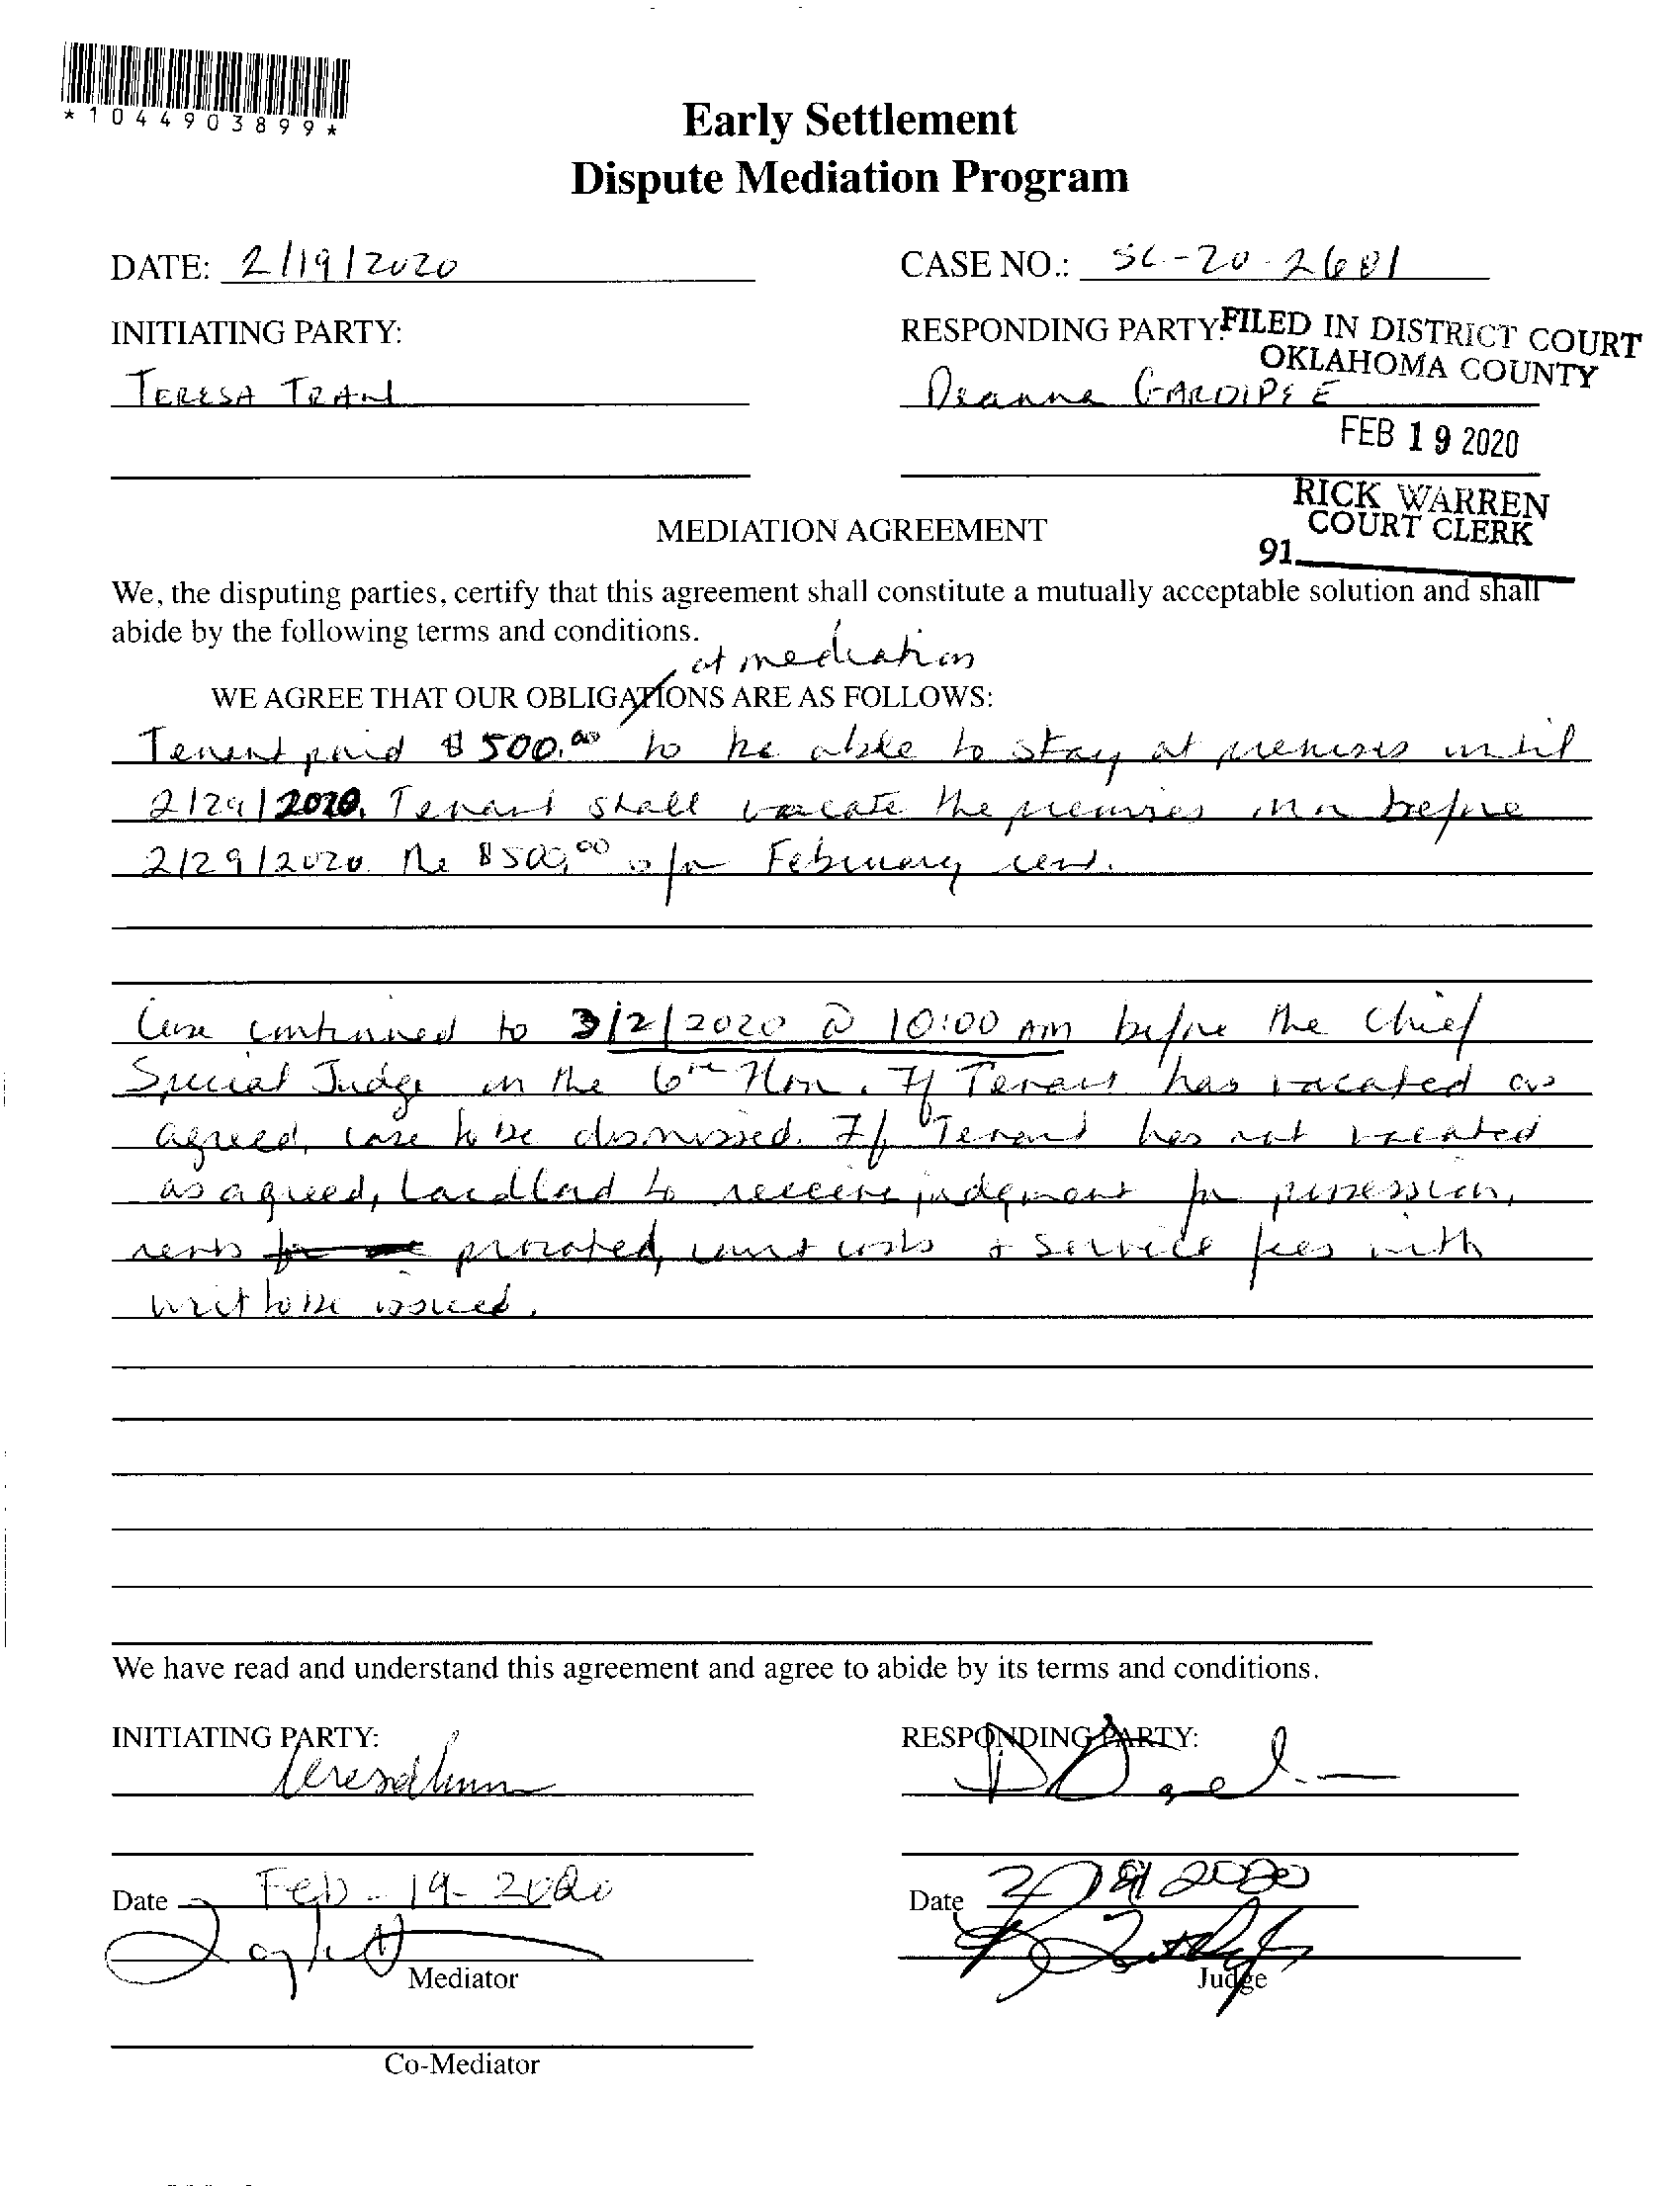 *1044903899*
Early Settlement
Dispute Mediation Program
DATE: 2/19/2020 CASE NO.: SC-20-2681
INITIATING PARTY: RESPONDING PARTY:
FILED IN DISTRICT COURT
OKLAHOMA COUNTY
TERESA TRAN Deanna GARDIPEE
FEB 19 2020
RICK WARREN
COURT CLERK
91
MEDIATION AGREEMENT
We, the disputing parties, certify that this agreement shall constitute a mutually acceptable solution and shall
abide by the following terms and conditions.
at mediation
WE AGREE THAT OUR OBLIGATIONS ARE AS FOLLOWS:
Tenant paid $500.00 to be able to stay at premises until
2/29/2020. Tenant shall vacate the premises on or before
2/29/2020. The $500.00 is for February rent.
Case continued to 3/2/2020 @ 10:00 AM before the Chief
Special Judge on the 6th Floor. If Tenant has vacated as
agreed, case to be dismissed. If Tenant has not vacated
as agreed, Landlord to receive judgment for possession,
rents prorated, court costs + service fees with
writ to be issued.
We have read and understand this agreement and agree to abide by its terms and conditions.
INITIATING PARTY: RESPONDING PARTY:
Date Feb-19-2020 Date 2/19/2020
Mediator Judge
Co-Mediator